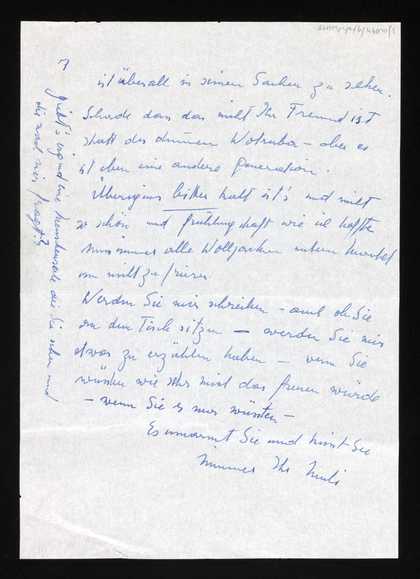 ist überall in seinen Sachen zu sehen.
Schade dass das nicht Ihr Freund ist
statt des dummen Wotruba – aber es
ist eben eine andere Generation.
Übrigens bitter kalt ist's und nicht
so schön und frühlingshaft wie ich hoffte
muss immer alle Wolljacken unterm Mantel
um nicht zu frieren
Werden Sie mir schreiben – auch ob Sie
an den Tisch sitzen – werden Sie mir
etwas zu erzählen haben – wenn Sie
wüssten wie mich das freuen würde
– wenn Sie es nur wüssten –
Es umarmt Sie und küsst Sie
immer Ihr
gibt's irgend eine die Sie sehen und
die nach mir fragt?